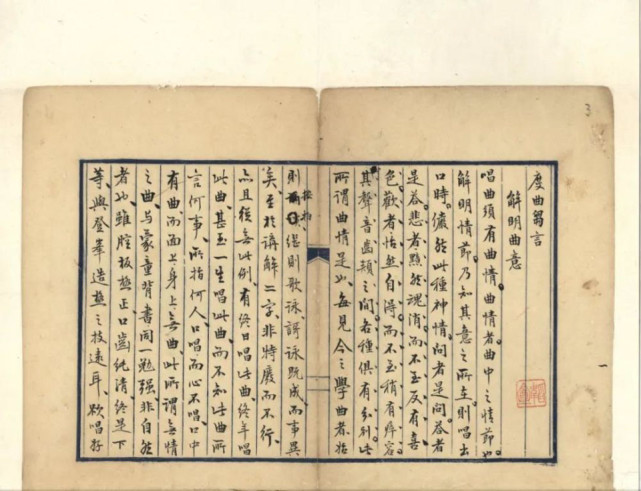 度曲芻言
解明曲意
唱曲須有曲情。曲情者曲中之情節也
解明情節乃知其意之所至。則唱出
口時。儼然此種神情。問者是問。答者
是答。悲者黯然魂消。而不至反有喜
色。歡者怡然自得。而不至稍有瘁容。
其聲音齒頰之間。各種俱有分別。此
所謂曲情是也。每見今之學曲者。始
則 繼則歌詠。謌詠既成而事畢
按拍
矣。至於講解二字。非特廢而不行、
亦且從無此例、有終日唱此曲終年唱
此曲、甚至一生唱此曲、而不知此曲所
言何事、所指何人、口唱而心不唱、口中
有曲而面上身上無曲、此所謂無情
之曲、與蒙童背書同一勉强、非自然
者也、雖腔板極正、口齒純清、終是下
等、與登峯造極之技遠耳、欲唱好
3